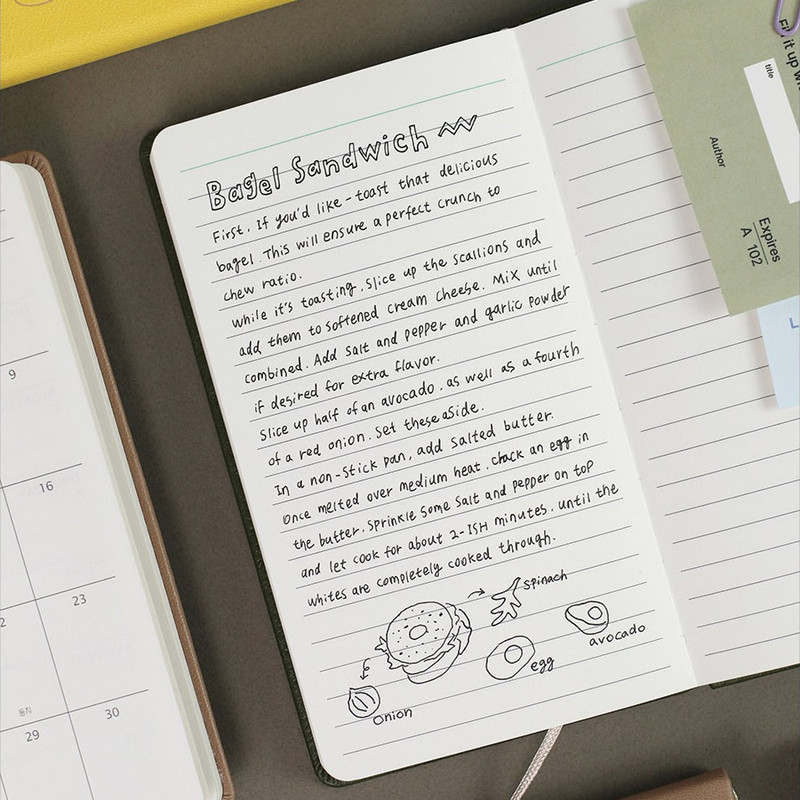 Bagel Sandwich
First. If you'd like - toast that delicious
bagel. This will ensure a perfect crunch to
chew ratio.
while it's toasting, slice up the scallions and
add them to softened cream cheese. Mix until
combined. Add salt and pepper and garlic powder
if desired for extra flavor.
Slice up half of an avocado, as well as a fourth
of a red onion. Set these aside.
In a non-stick pan, add salted butter.
Once melted over medium heat, crack an egg in
the butter. Sprinkle some salt and pepper on top
and let cook for about 2-ISH minutes, until the
whites are completely cooked through.
spinach
avocado
egg
onion
9
16
23
30
29
2
title
Author
Expires
A 102
it up
L